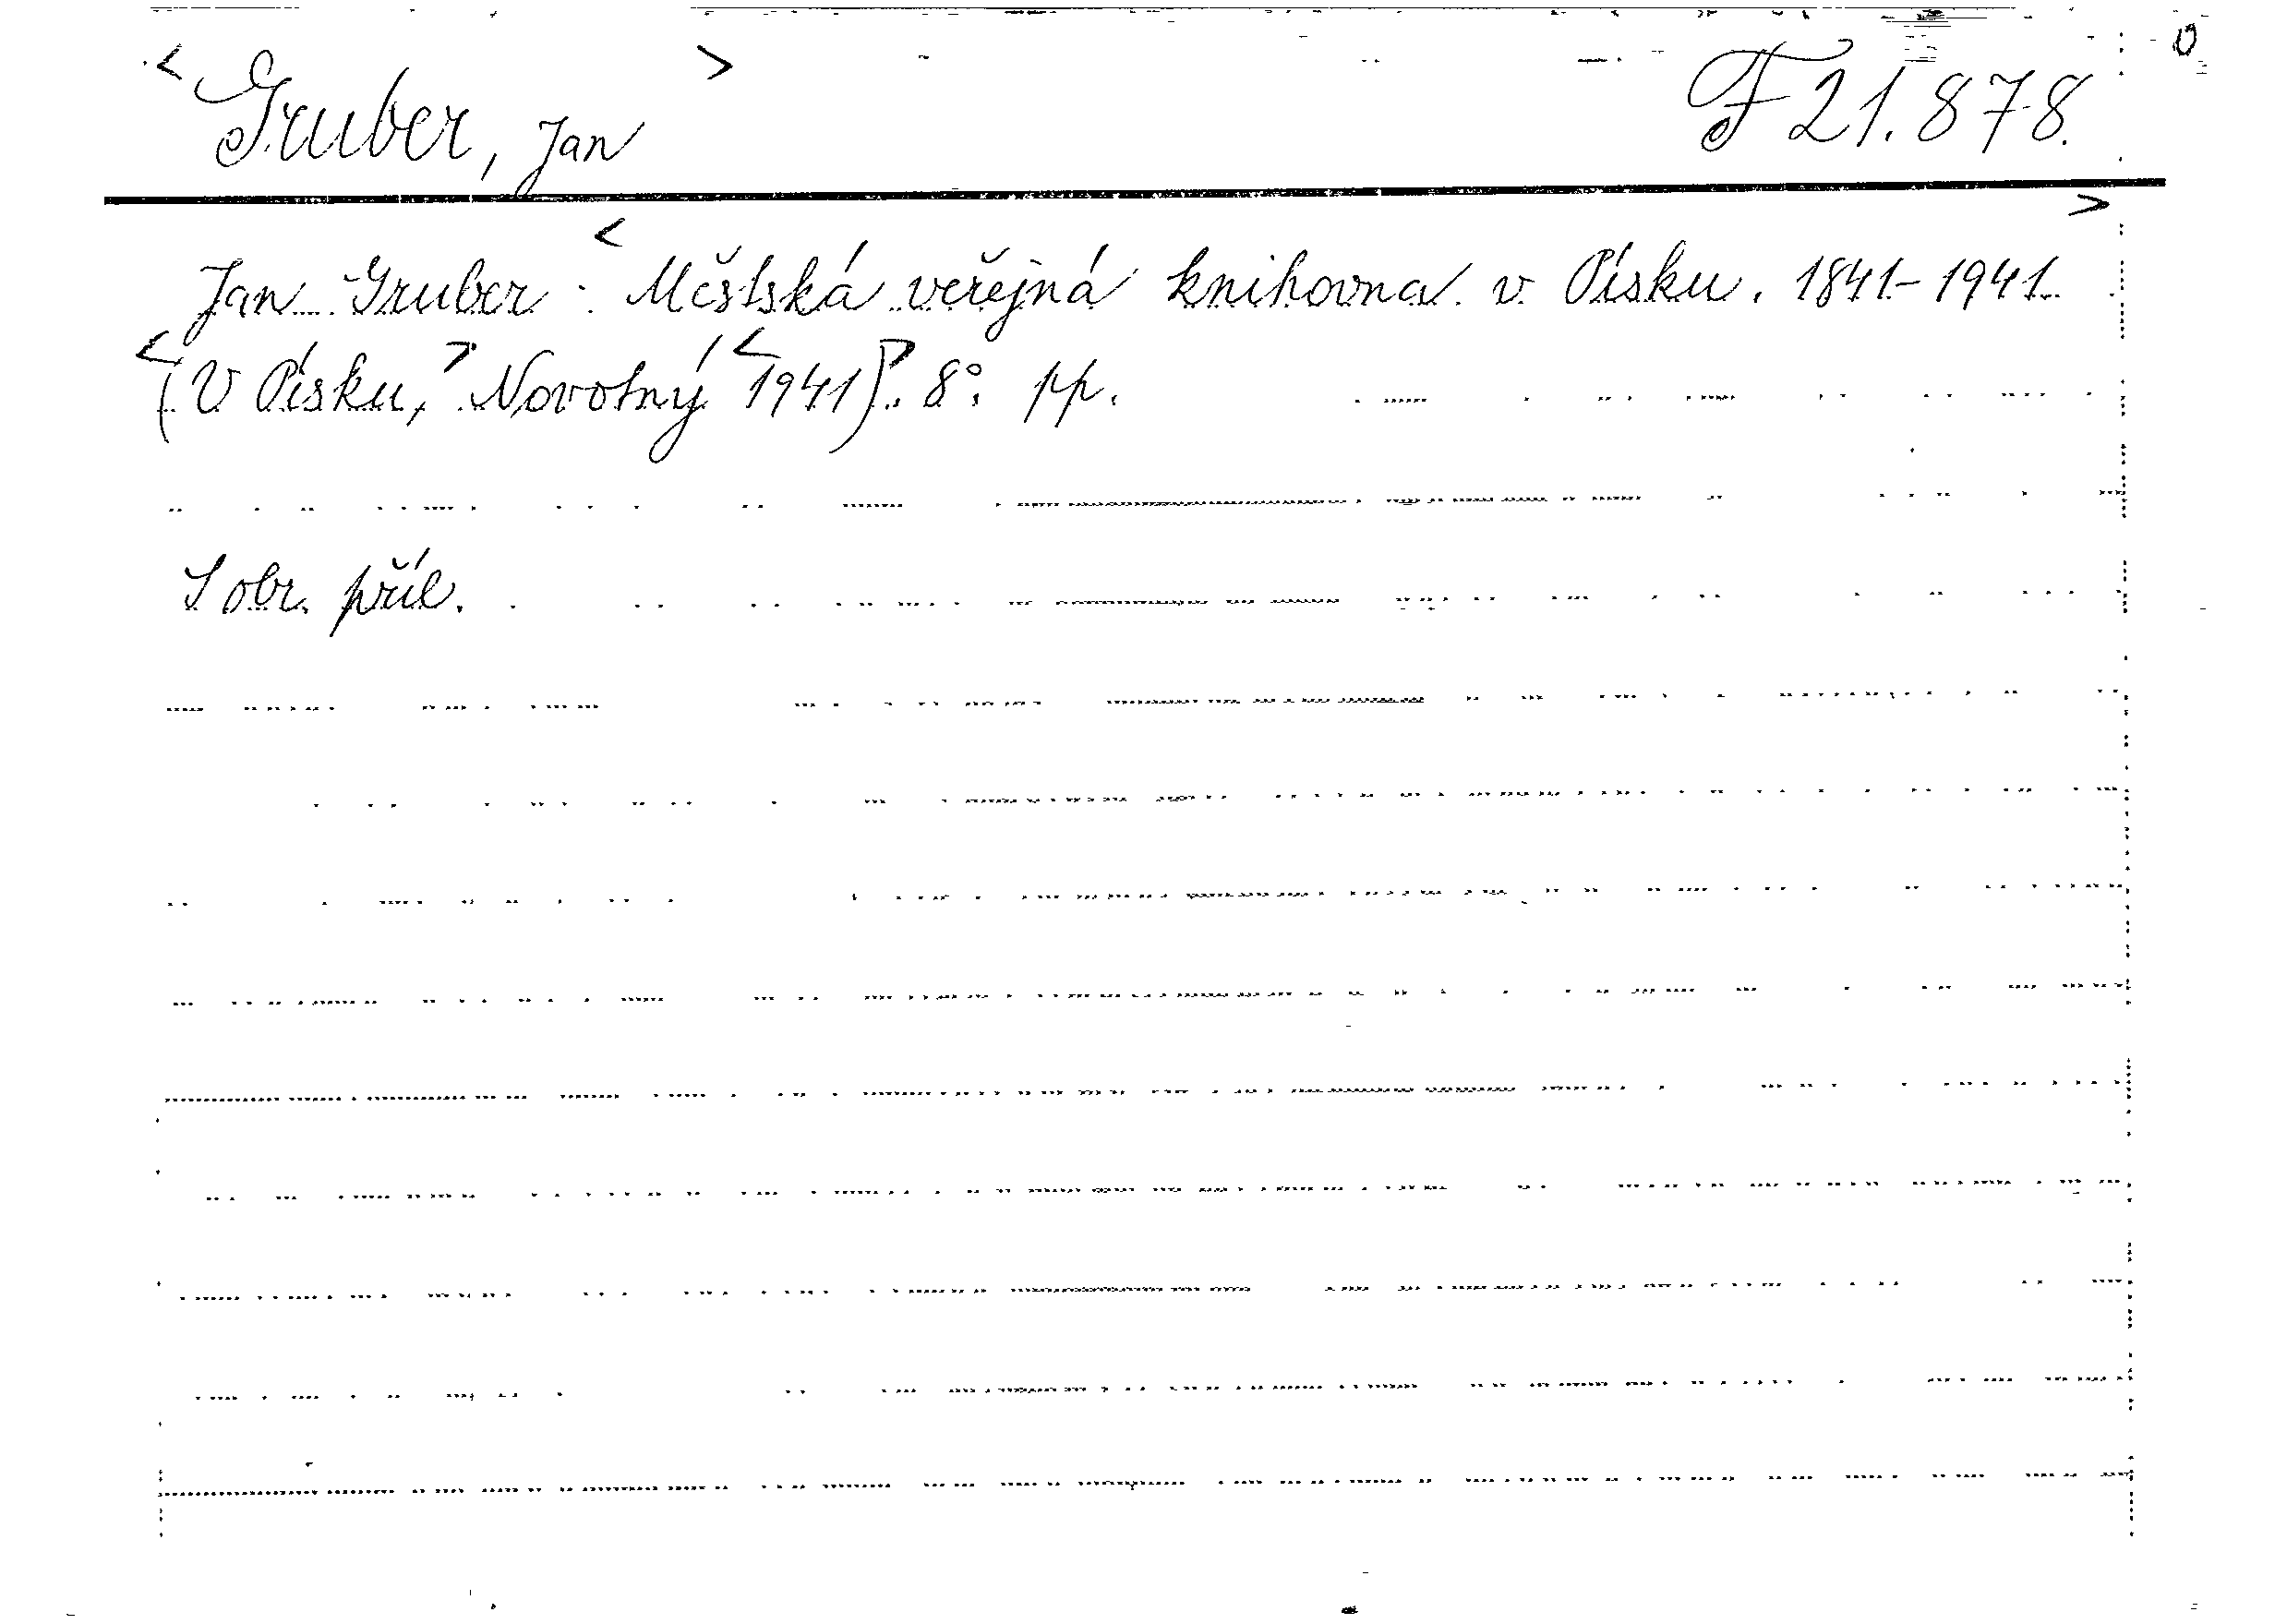 <Gruber, Jan> F 21.878.
Jan Gruber: <Městská veřejná knihovna v Písku. 1841-1941>
<(V Písku,> Novotný <1941)>. 8°. pp.
S obr. příl.